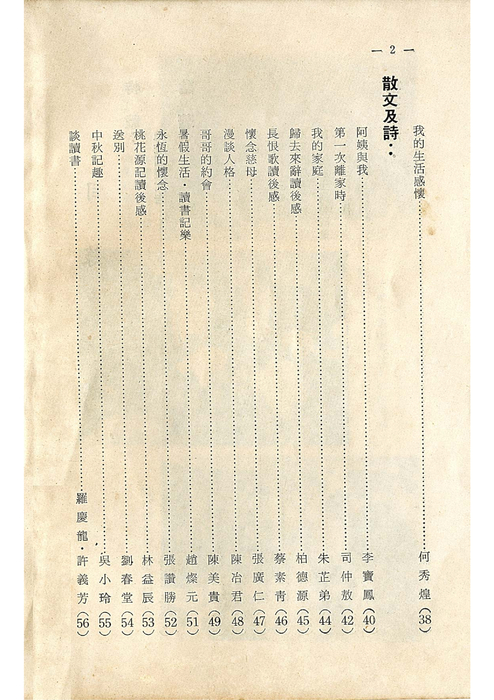 — 2 —
我的生活感懷……何秀煌(38)
散文及詩：
阿姨與我……李寶鳳(40)
第一次離家時……司仲敖(42)
我的家庭……朱芷弟(44)
歸去來辭讀後感……柏德源(45)
長恨歌讀後感……蔡素青(46)
懷念慈母……張廣仁(47)
漫談人格……陳冶君(48)
哥哥的約會……陳美貴(49)
暑假生活·讀書記樂……趙燦元(51)
永恆的懷念……張讚勝(52)
桃花源記讀後感……林益辰(53)
送別……劉春堂(54)
中秋記趣……吳小玲(55)
談讀書……羅慶龍·許義芳(56)